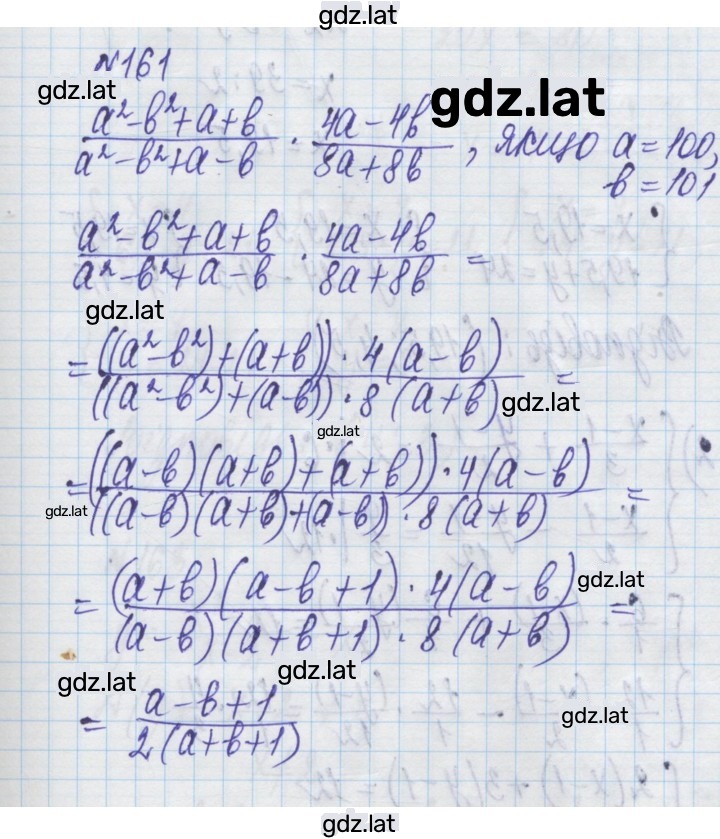 gdz.lat
№161
gdz.lat
gdz.lat
a²-b²+a+b / a²-b²+a-b · 4a-4b / 8a+8b , якщо a=100,
b=101
a²-b²+a+b / a²-b²+a-b · 4a-4b / 8a+8b =
gdz.lat
= ((a²-b²)+(a+b))·4(a-b) / ((a²-b²)+(a-b))·8(a+b) =
gdz.lat
gdz.lat
= ((a-b)(a+b)+(a+b))·4(a-b) / ((a-b)(a+b)+(a-b)·8(a+b) =
gdz.lat
= (a+b)(a-b+1)·4(a-b) / (a-b)(a+b+1)·8(a+b) =
gdz.lat
gdz.lat
gdz.lat
= a-b+1 / 2(a+b+1)
gdz.lat
gdz.lat